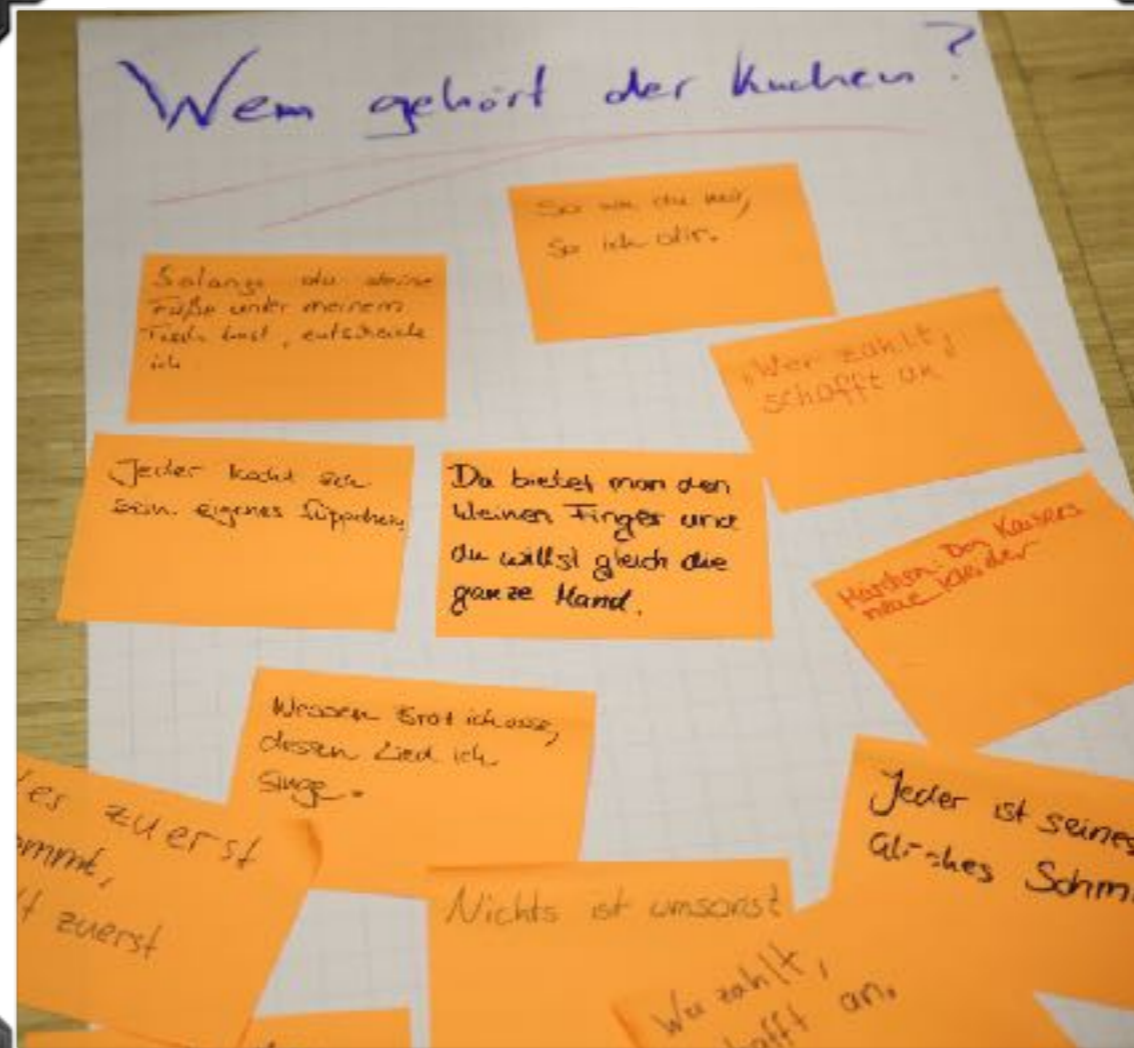 Wem gehört der Kuchen?
So wie du mir,
so ich dir.
Solange du deine
Füße unter meinem
Tisch hast, entscheide
ich
"Wer zahlt,
schafft an
Jeder kocht sich
sein eigenes Süppchen
Da bietet man den
kleinen Finger und
du willst gleich die
ganze Hand.
Märchen: Des Kaisers
neue Kleider
Wessen Brot ich esse,
dessen Lied ich
singe.
zuerst
ommt,
t zuerst
Jeder ist seines
Glückes Schm
Nichts ist umsonst
Wer zahlt,
afft an.